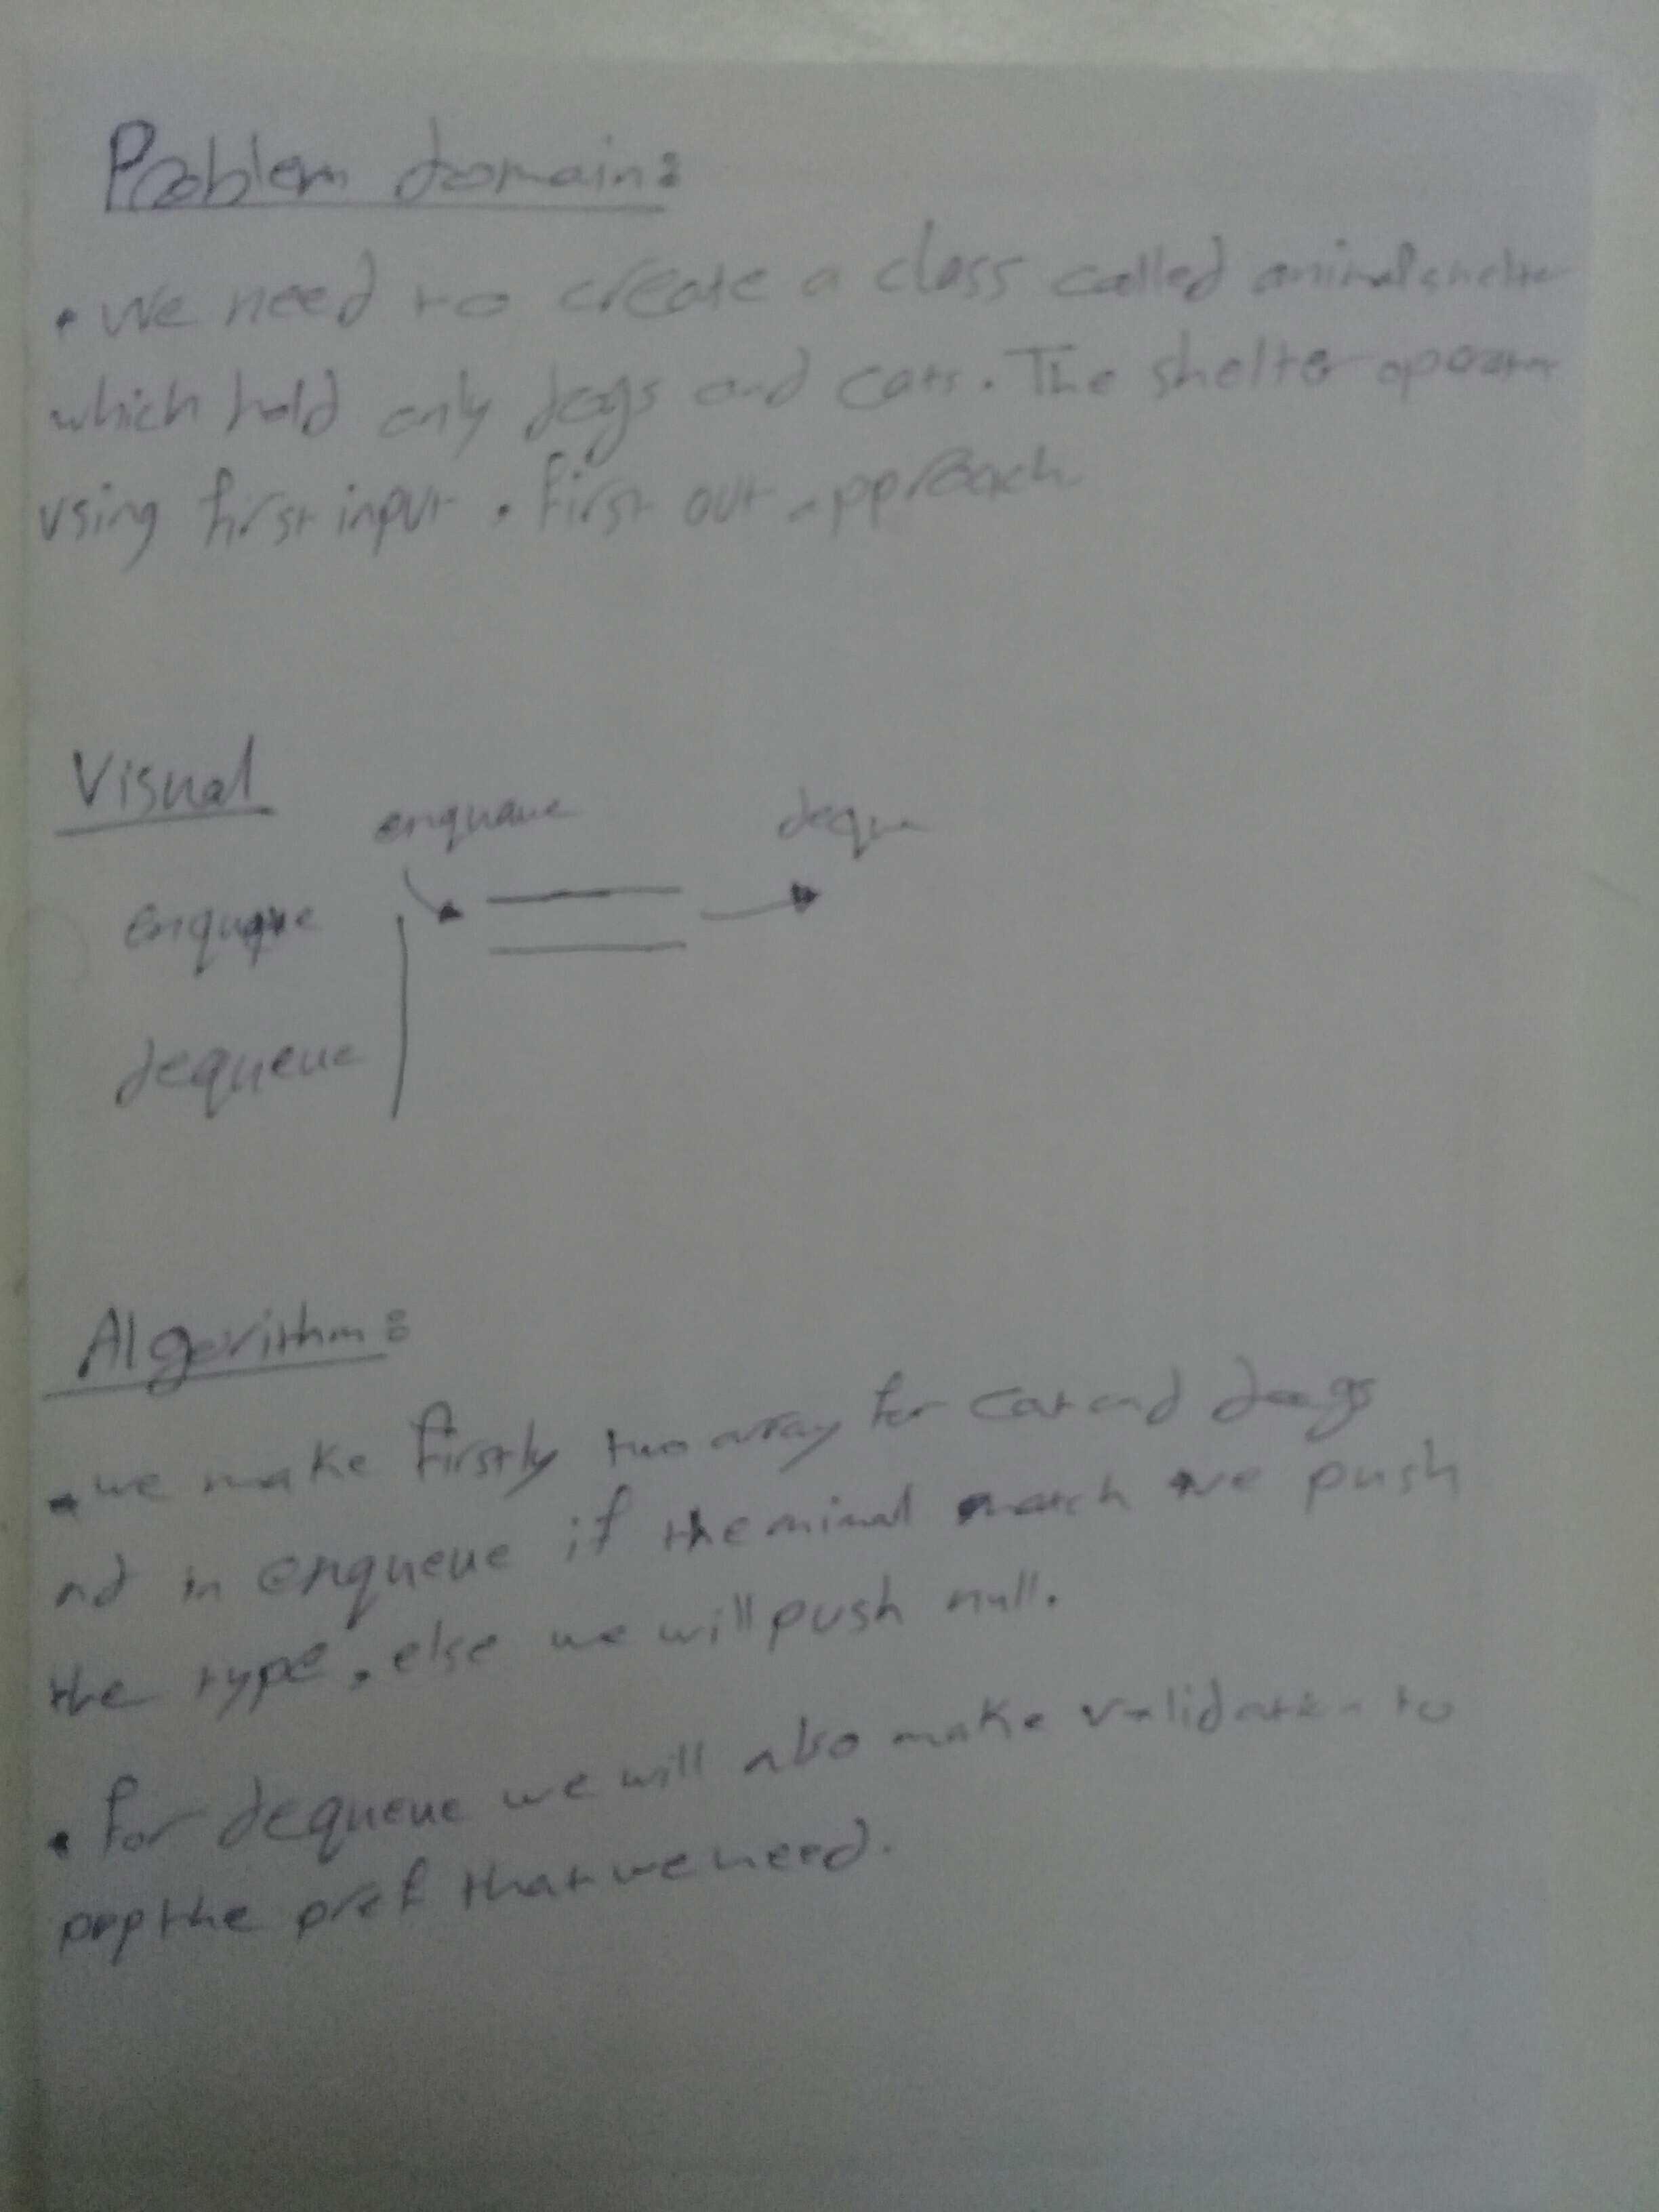 Problem domain:
• We need to create a class called animalshelter
which hold only dogs and cats. The shelter
using first input. First out approach
Visual
enquaue deque
enqueue
dequeue
Algorithm:
• we make firstly two array for cat and dogs
nd in enqueue if the animal match we push
the type, else we will push null.
• For dequeue we will also make validation to
pop the pref that we need.